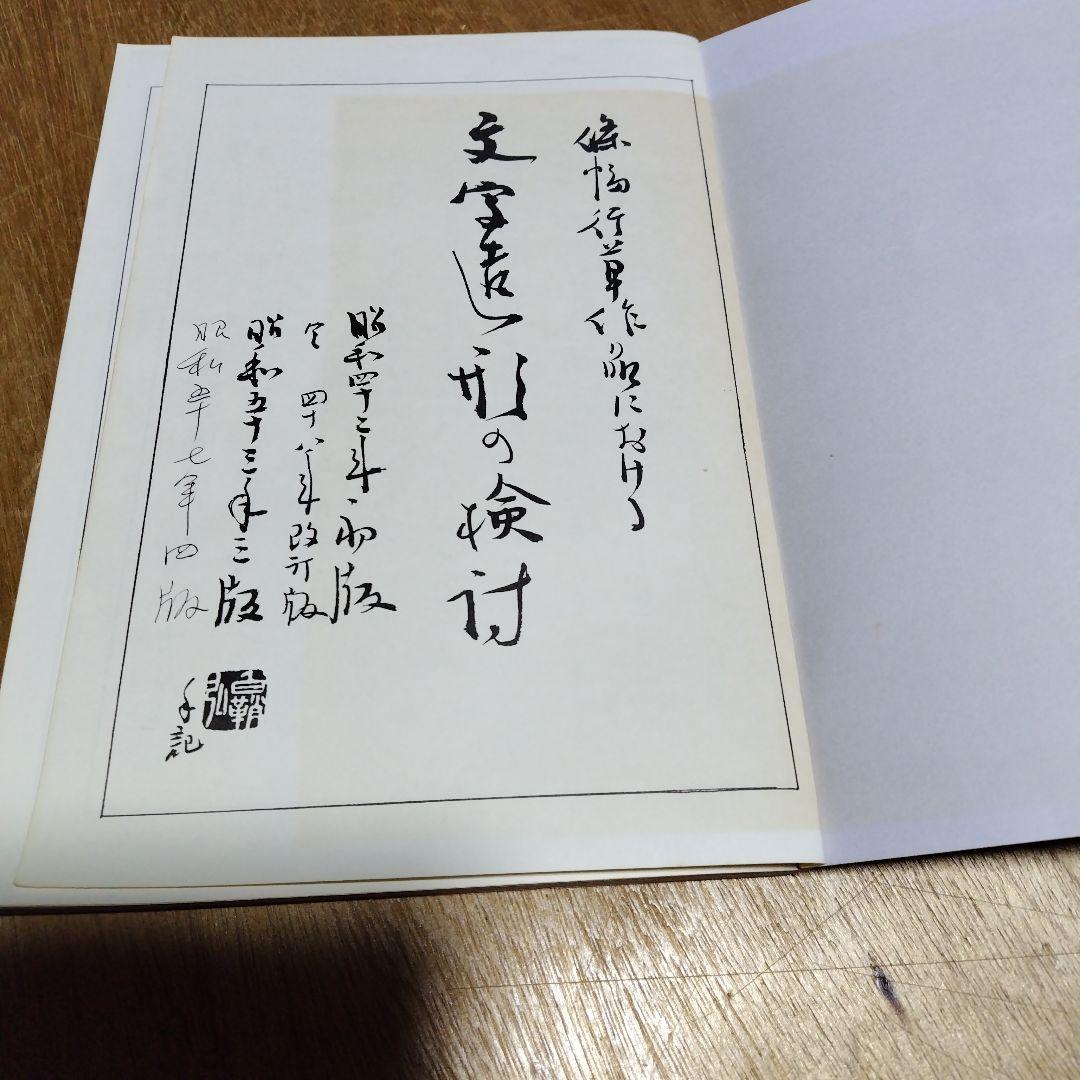 條幅行草作品における
文字造形の検討
昭和四十二年 初版
仝 四十八年 改訂版
昭和五十三年三版
昭和五十七年四版
手記